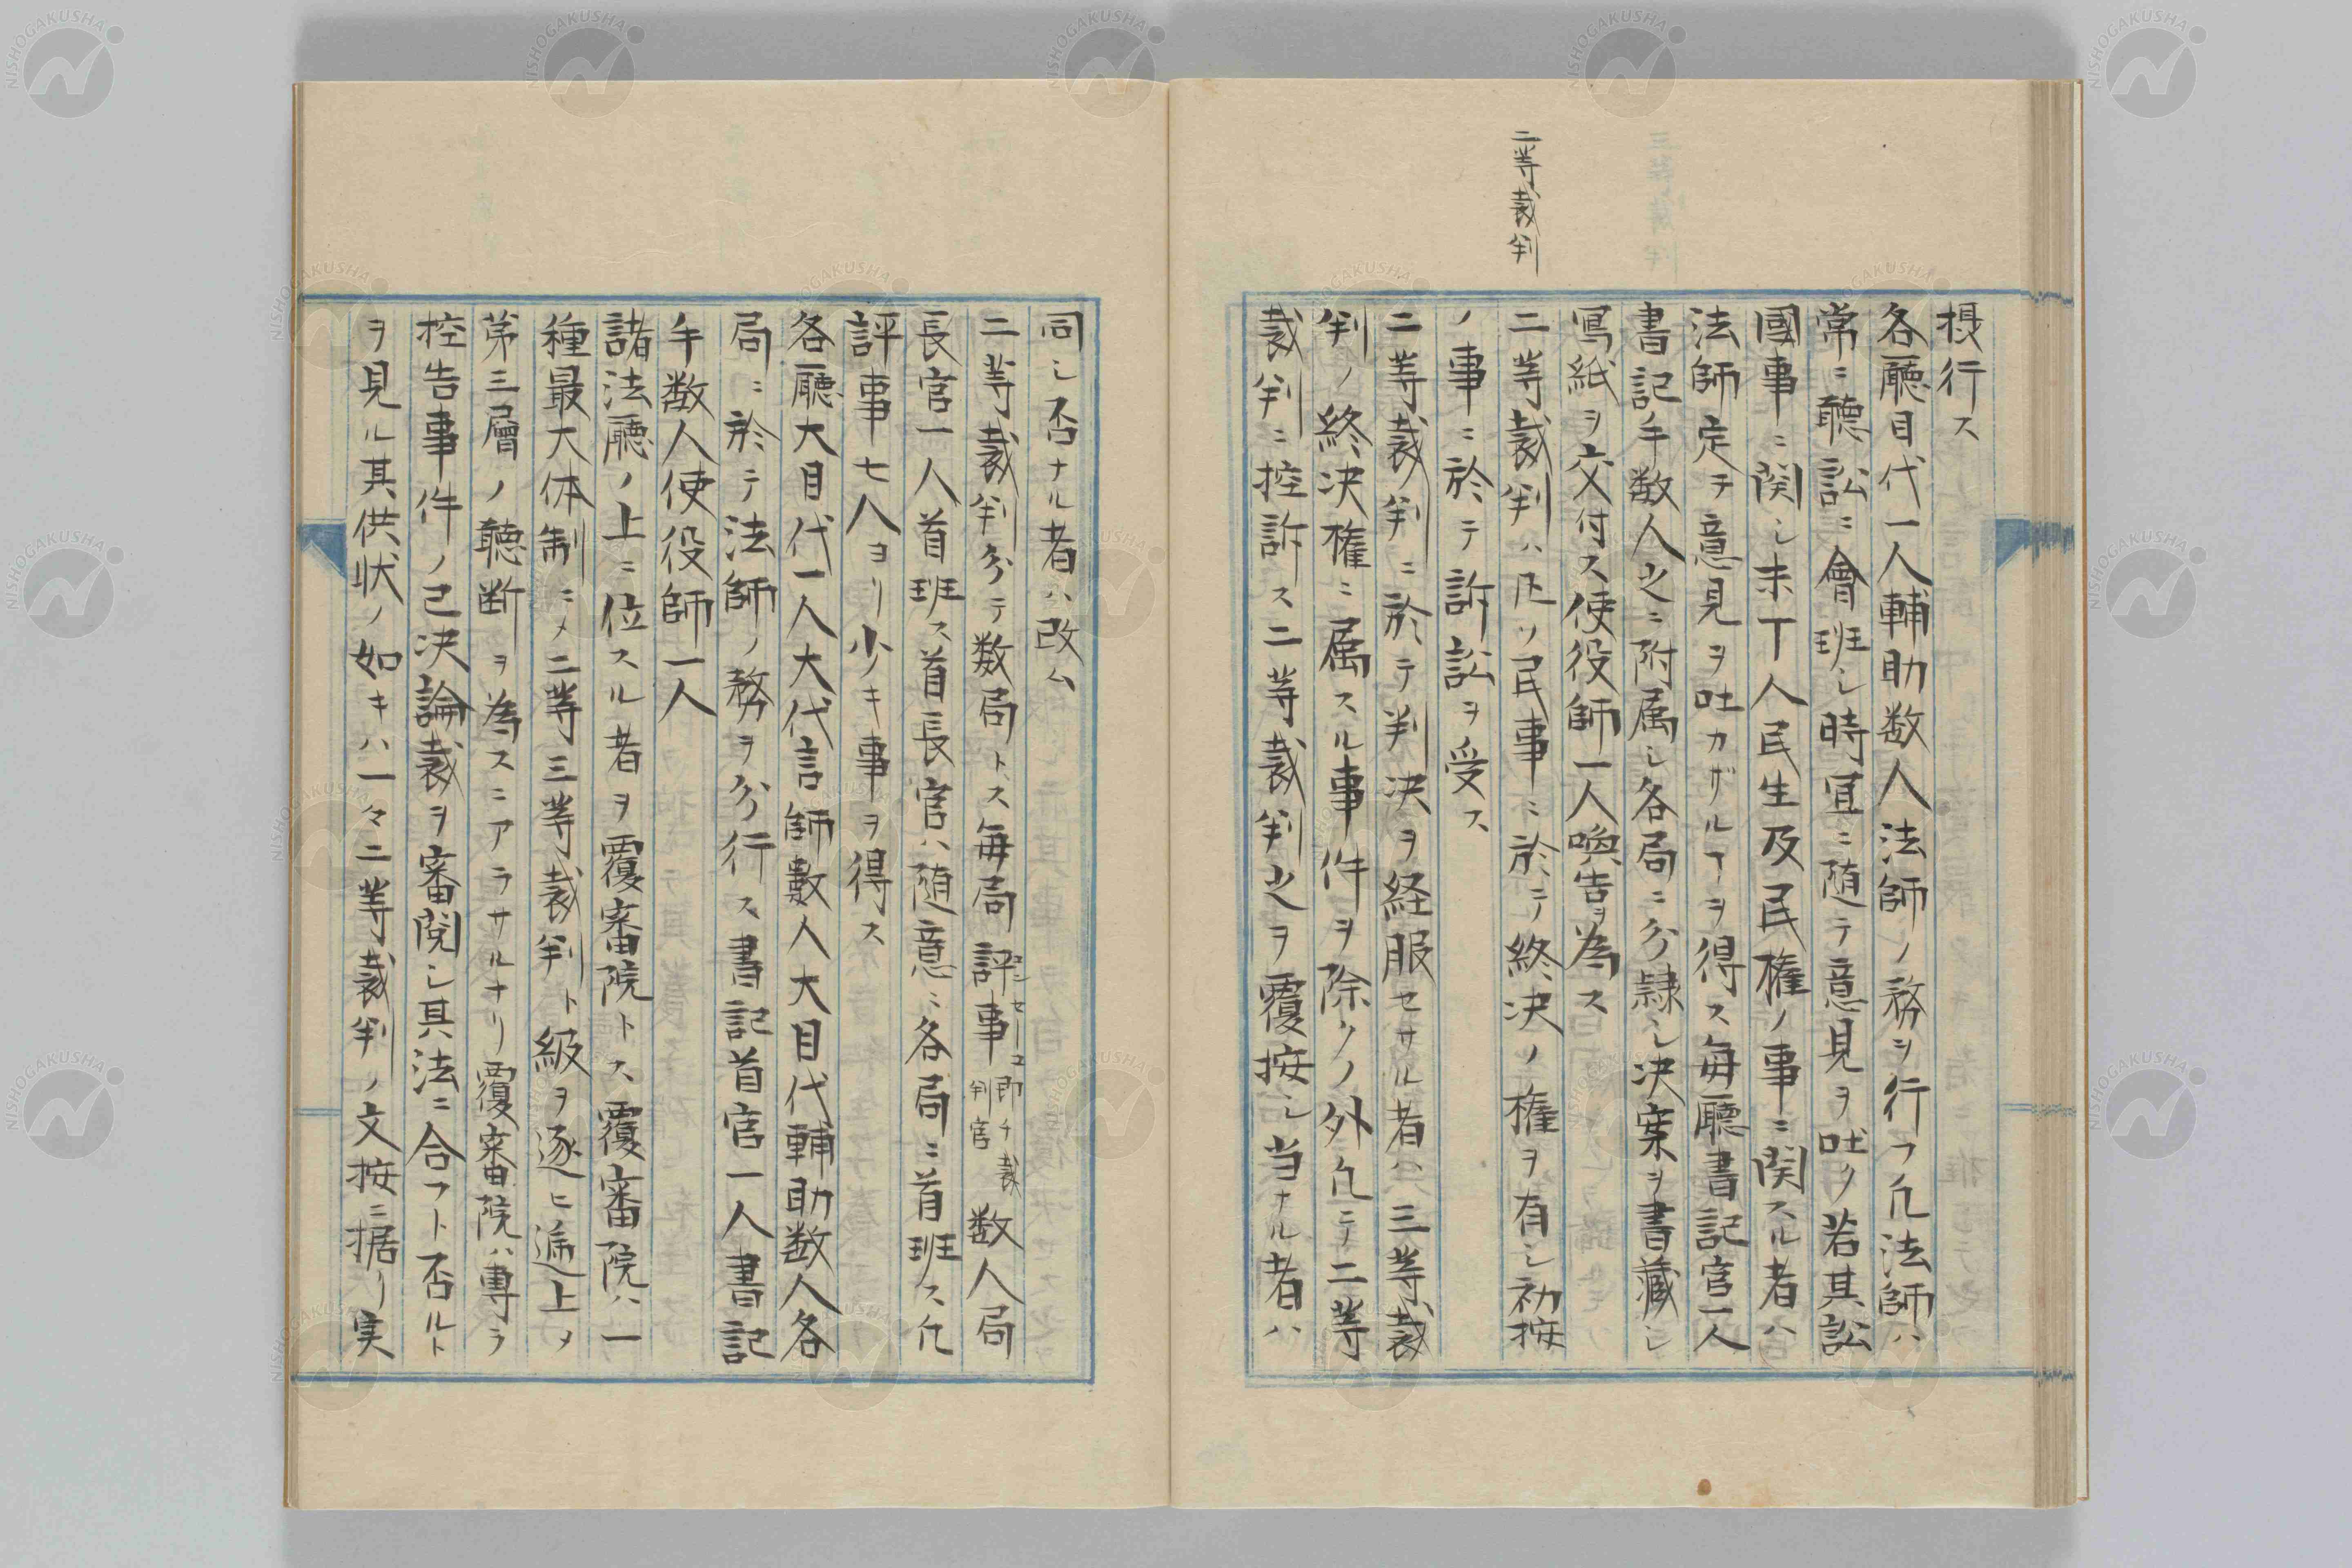 摂行ス
各廳目代一人輔助数人法師ノ務ヲ行フ凢法師ハ
常ニ聽訟ニ會班シ時冝ニ随テ意見ヲ吐ク若其訟
國事ニ関シ未丁人民生及民権ノ事ニ関スル者ハ
法師定ヲ意見ヲ吐カザルヿヲ得ス毎廳書記官一人
書記手数人之ニ附属シ各局ニ分隷シ决案ヲ書藏シ
寫紙ヲ交付ス使役師一人喚告ヲ為ス
二等裁判
二等裁判ハ凡ソ民事ニ於テ終决ノ権ヲ有シ初按
ノ事ニ於テ訴訟ヲ受ス
二等裁判ニ於テ判决ヲ経服セサル者ハ三等裁
判ノ終决権ニ属スル事件ヲ除クノ外凢ニテ二等
裁判ニ控訴ス二等裁判之ヲ覆按シ当ナル者ハ
同シ否ナル者ハ改ム
二等裁判分テ数局トス毎局評事コンセーユ即チ裁判官数人局
長官一人首班ス首長官ハ随意ニ各局ニ首班ス凢
評事七人ヨリ少キ事ヲ得ス
各廳大目代一人大代言師數人大目代輔助数人各
局ニ於テ法師ノ務ヲ分行ス書記首官一人書記
手数人使役師一人
諸法廳ノ上ニ位スル者ヲ覆審院トス覆審院ハ一
種最大体制ニメ二等三等裁判ト級ヲ逐ヒ逓上メ
第三層ノ聴断ヲ為スニアラサルナリ覆審院ハ專ラ
控告事件ノ已决論裁ヲ審閲シ其法ニ合フト否ルト
ヲ見ル其供状ノ如キハ一々二等裁判ノ文按ニ据リ実